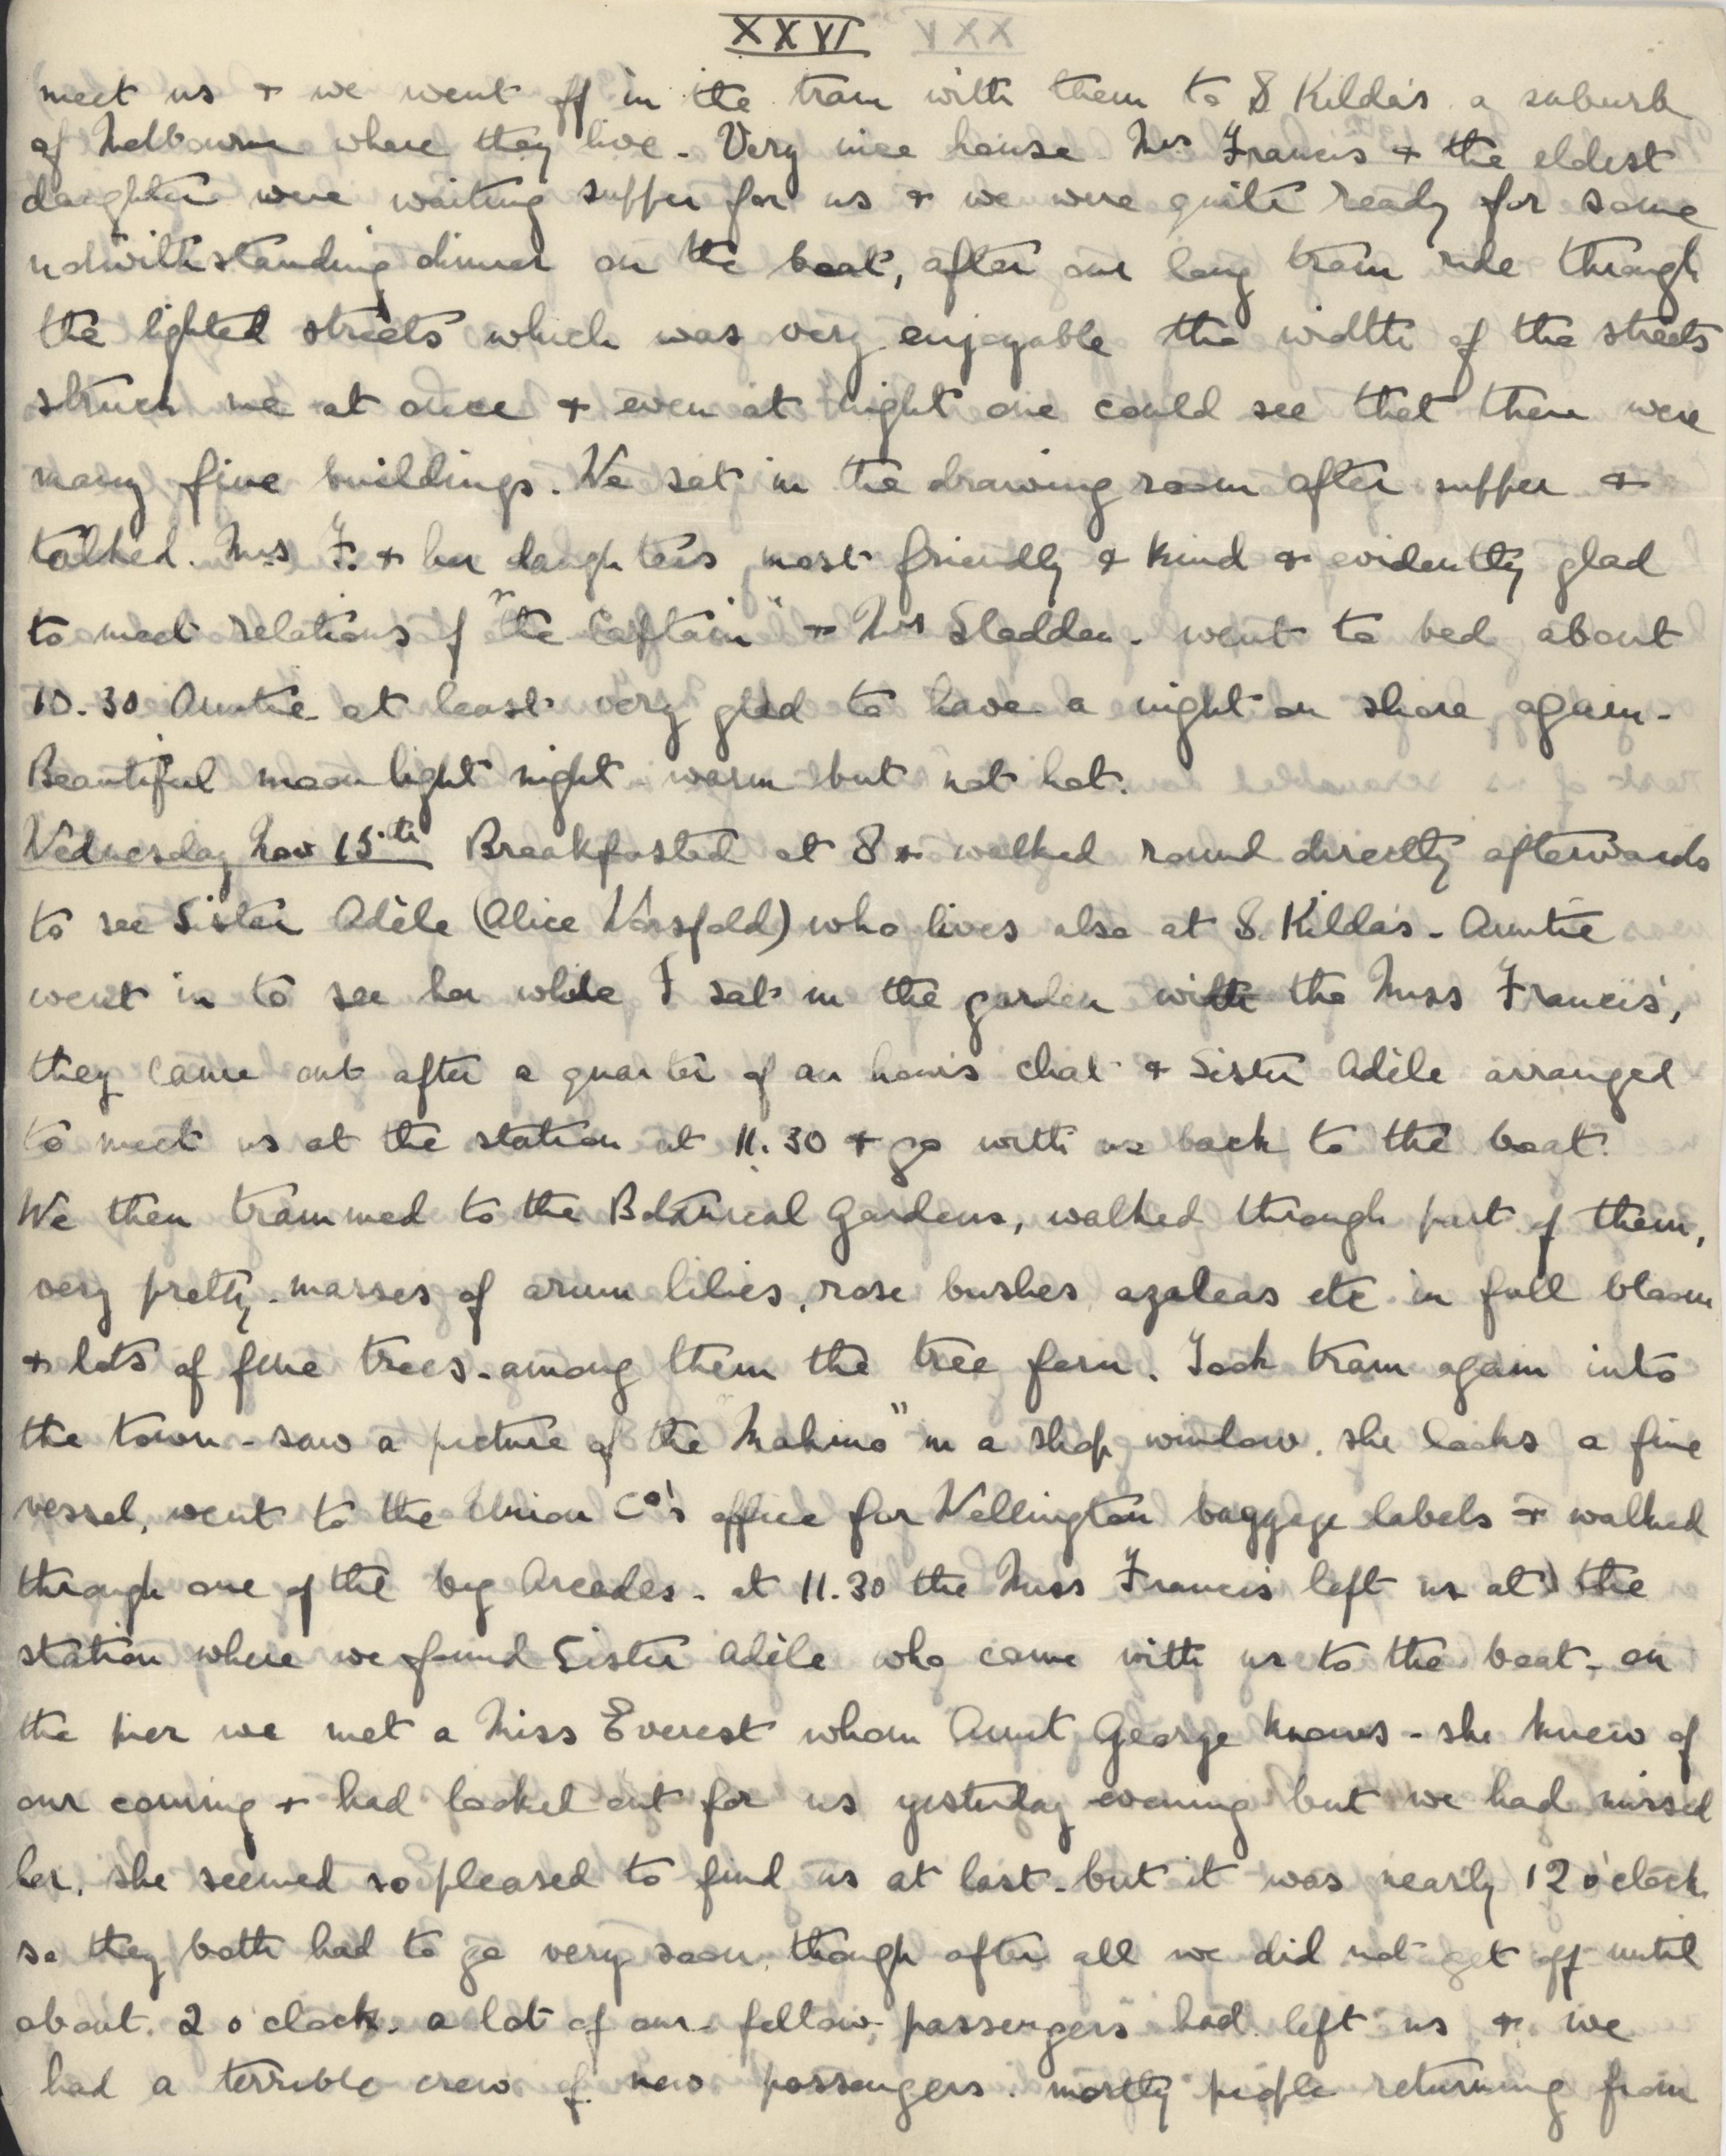 XXVI
meet us + we went off in the tram with them to S Kilda's a suburb
of Melbourne where they live - Very nice house Mrs Francis + the eldest
daughter were waiting supper for us + we were quite ready for some
notwithstanding dinner on the boat, after our long tram ride through
the lighted streets which was very enjoyable the width of the streets
struck me at once + even at night one could see that there were
many fine buildings. We sat in the drawing room after supper +
talked. Mrs F. + her daughters most friendly & kind + evidently glad
to meet relations of "the Captain" + Mrs Sladden - went to bed about
10.30 Auntie at least very glad to have a night on shore again -
Beautiful moonlight night warm but not hot.
Wednesday Nov 15th Breakfasted at 8 + walked round directly afterwards
to see Sister Adèle (Alice Worsfold) who lives also at S. Kilda's - Auntie
went in to see her while I sat in the garden with the Miss Francis',
they came out after a quarter of an hours chat + Sister Adèle arranged
to meet us at the station at 11.30 + go with us back to the boat.
We then trammed to the Botanical Gardens, walked through part of them,
very pretty - masses of arum lilies, rose bushes azaleas etc in full bloom
+ lots of fine trees - among them the tree fern. Took tram again into
the town - saw a picture of the "Makino" in a shop window. she looks a fine
vessel, went to the Union Co's office for Wellington baggage labels + walked
through one of the big Arcades - at 11.30 the Miss Francis left us at the
station where we found Sister Adèle who came with us to the boat - on
the pier we met a Miss Everest whom Aunt George knows - she knew of
our coming + had looked out for us yesterday evening but we had missed
her, she seemed so pleased to find us at last - but it was nearly 12 o'clock
so they both had to go very soon, though after all we did not get off until
about 2 o'clock. a lot of our fellow passengers had left us + we
had a terrible crew of new passengers. mostly people returning from